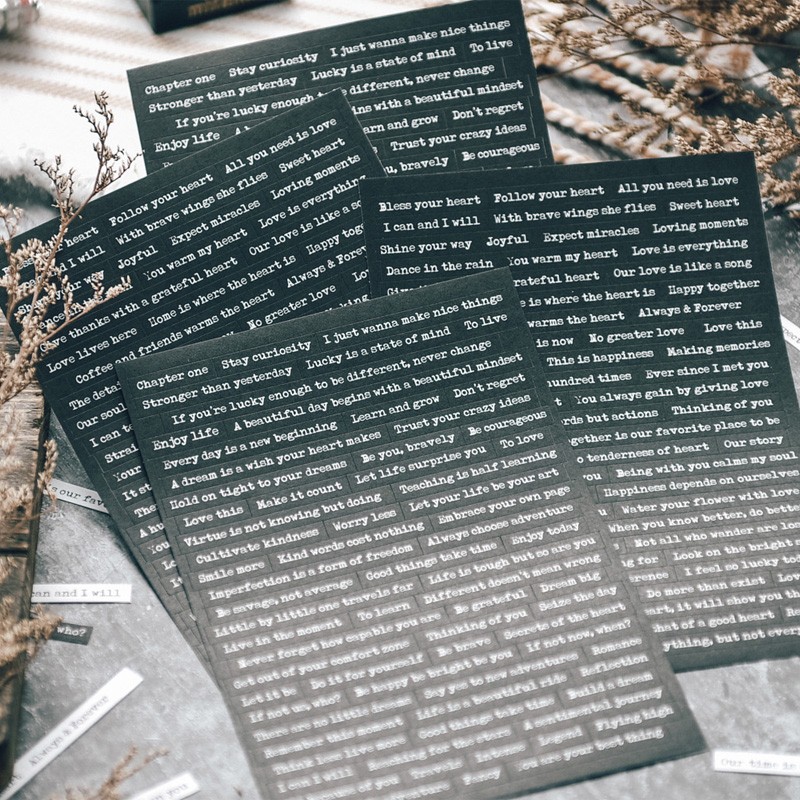 Chapter one Stay curiosity I just wanna make nice things
Stronger than yesterday Lucky is a state of mind To live
If you're lucky enough different, never change
Enjoy life with a beautiful mindset
and grow Don't regret
Trust your crazy ideas
bravely Be courageous
heart Follow your heart All you need is love
and I will With brave wings she flies Sweet heart
Joyful Expect miracles Loving moments
You warm my heart Love is everything
Give thanks with a grateful heart Our love is like a
Love lives here Home is where the heart is Happy
Coffee and friends warms the heart Always &
The No greater love
Our soul
I can
Your
It
Bless your heart Follow your heart All you need is love
I can and I will With brave wings she flies Sweet heart
Shine your way Joyful Expect miracles Loving moments
Dance in the rain You warm my heart Love is everything
grateful heart Our love is like a song
is where the heart is Happy together
warms the heart Always & Forever
is now No greater love Love this
This is happiness Making memories
hundred times Ever since I met you
You always gain by giving love
but actions Thinking of you
is our favorite place to be
tenderness of heart Our story
you Being with you calms my soul
Happiness depends on ourselves
Water your flower with love
When you know better, do better
Not all who wander are
for Look on the bright
I feel so lucky
Do more than exist
it will show you
of a good heart
but not
Chapter one Stay curiosity I just wanna make nice things
Stronger than yesterday Lucky is a state of mind To live
If you're lucky enough to be different, never change
Enjoy life A beautiful day begins with a beautiful mindset
Every day is a new beginning Learn and grow Don't regret
A dream is a wish your heart makes Trust your crazy ideas
Hold on tight to your dreams Be you, bravely Be courageous
Love this Make it count Let life surprise you To love
Virtue is not knowing but doing Teaching is half learning
Cultivate kindness Worry less Let your life be your art
Smile more Kind words cost nothing Embrace your own page
Imperfection is a form of freedom Always choose adventure
Be savage, not average Good things take time Enjoy today
Little by little one travels far Life is tough but so are you
Live in the moment To learn Different doesn't mean wrong
Never forget how capable you are Be grateful Dream big
Get out of your comfort zone Thinking of you Seize the day
Let it be Do it for yourself Be brave Secrets of the heart
If not us, who? Be happy be bright be you If not now, when?
There are no little dreams Say yes to new adventures Romance
Remember this moment Life is a beautiful ride Reflection
Think less live more Good things take time Build a dream
I can I will Searching for the stars A sentimental journey
of you Travels Flying high
You are your best thing
our
can and I will
who?
Always & Forever
you
Our time is